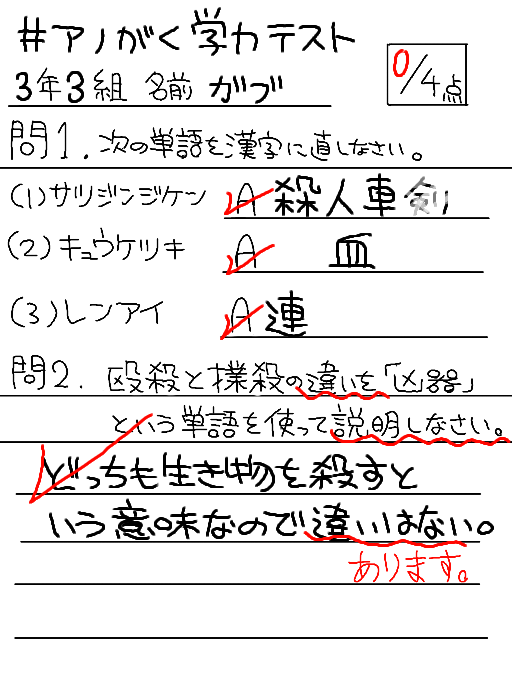 #アノがく学力テスト
3年3組 名前 ガブ
0/4点
問1.次の単語を漢字に直しなさい。
(1)サツジンジケン A 殺人車剣
(2)キュウケツキ A 皿
(3)レンアイ A 連
問2.殴殺と撲殺の違いを「凶器」
という単語を使って説明しなさい。
どっちも生き物を殺すと
いう意味なので違いはない。
あります。